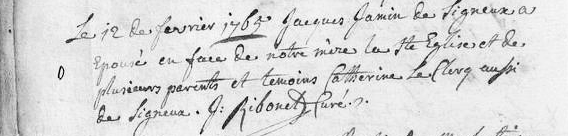 Le 12 de fevrier 1765 Jacques Jamin de Signeux a
Epousé en face de notre mère la Ste Eglise et de
plusieurs parents et temoins Catherine Le Clerq aussi
de Signeux. J: Ribonet Curé.